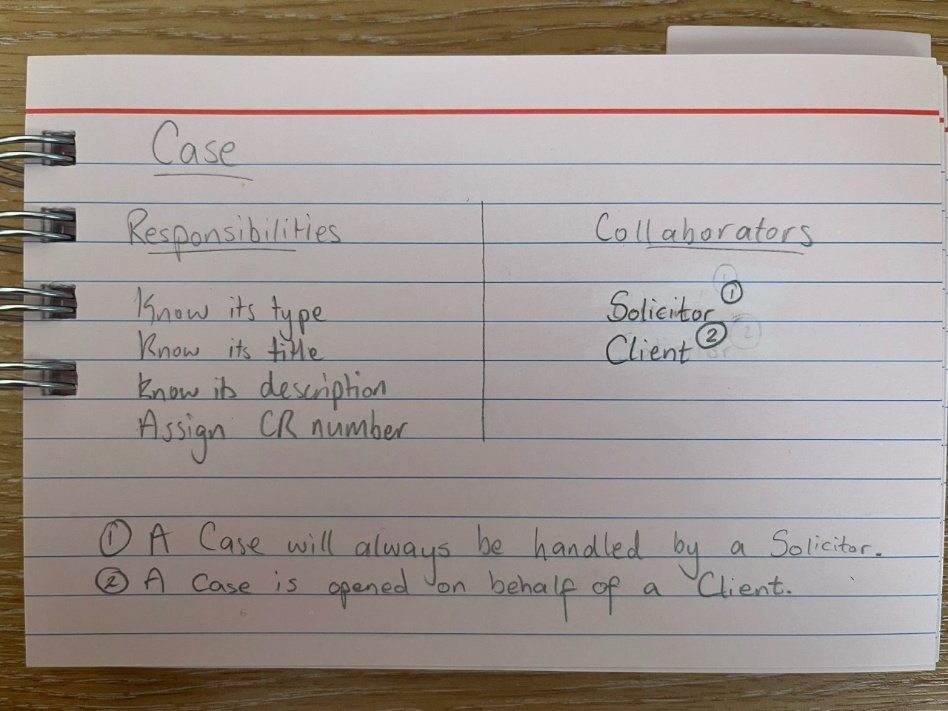 Case
Responsibilities
Collaborators
Know its type
Solicitor ①
Know its title
Client ②
Know its description
Assign CR number
① A Case will always be handled by a Solicitor.
② A Case is opened on behalf of a Client.